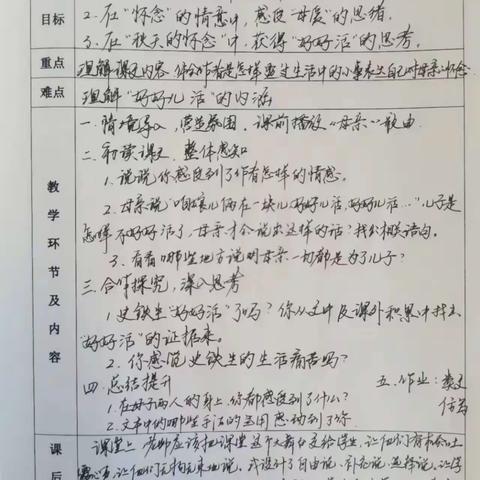 目标
2.在“怀念”的情意中，感受“母爱”的思绪.
3.在“秋天的怀念”中，获得“好好活”的思考.
重点
理解课文内容 体会作者是怎样通过生活中的小事表达自己对母亲的怀念
难点
理解“好好儿活”的内涵
教学环节及内容
一.情境导入，营造氛围. 课前播放《母亲》歌曲.
二.初读课文. 整体感知
1.说说你感受到了作者怎样的情感.
2.母亲说“咱娘儿俩在一块儿,好好儿活,好好儿活…”儿子是
怎样不好好活了,母亲才会说出这样的话？找出相关语句.
3.看看哪些地方说明母亲一切都是为了儿子？
三.合作探究，深入思考
1.史铁生“好好活”了吗？你从文中及课外积累中找出
“好好活”的证据来.
2.你感觉史铁生的生活痛苦吗？
四.总结提升
五.作业：
1.在母子两人的身上,你都感受到了什么？
2.文本中的哪些手法的运用感动到了你.
课后
课堂上 老师应该把课堂这个大舞台交给学生,让他们有
让他们无拘无束地说. 我设计了自由说、补充说、选择说,让学